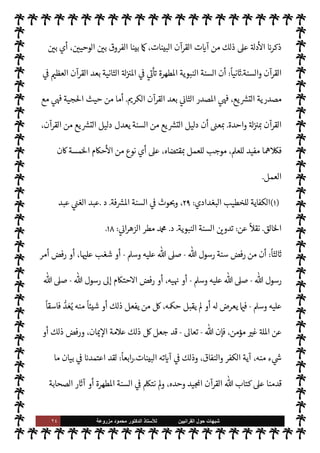 ذكرنا الأدلة على ذلك من آيات القرآن البينات، كما بينا الفروق بين الوحيين، أي بين
القرآن والسنة.ثانياً: أن السنة النبوية المطهرة تأتي في المنزلة الثانية بعد القرآن العظيم في
مصدرية التشريع، فهي المصدر الثاني بعد القرآن الكريم. أما من حيث الحجية فهي مع
القرآن بمنزلة واحدة، بمعنى أن دليل التشريع من السنة يعدل دليل التشريع من القرآن،
فكلاهما مفيد للعلم، موجب للعمل بمقتضاه، على أي نوع من الأحكام الخمسة كان
العمل.
(١) الكفاية للخطيب البغدادي: ٢٩، وبحوث في السنة المشرفة. د .عبد الغني عبد
الخالق. نقلاً عن: تدوين السنة النبوية. د. محمد مطر الزهراني: ١٨.
ثالثاً: أن من رفض سنة رسول الله - صلى الله عليه وسلم - أو شغب عليها, أو رفض أمر
رسول الله - صلى الله عليه وسلم - أو نهيه, أو رفض الاحتكام إلى رسول الله - صلى الله
عليه وسلم - فيما يعرض له أو لم يقبل حكمه, كل من يفعل ذلك أو شيئاً منه يُعَدُّ فاسقاً
عن الملة غير مؤمن, فإن الله - تعالى - قد جعل كل ذلك علامة الإيمان, ورفض ذلك أو
شيء منه, آية الكفر والنفاق, وذلك في آياته البينات.رابعاً: لقد اعتمدنا في بيان ما
قدمنا على كتاب الله القرآن المجيد وحده, ولم نتكلم في السنة المطهرة أو آثار الصحابة
شبهات حول القرآنيين للأستاذ الدكتور محمود مزروعة ٢٤